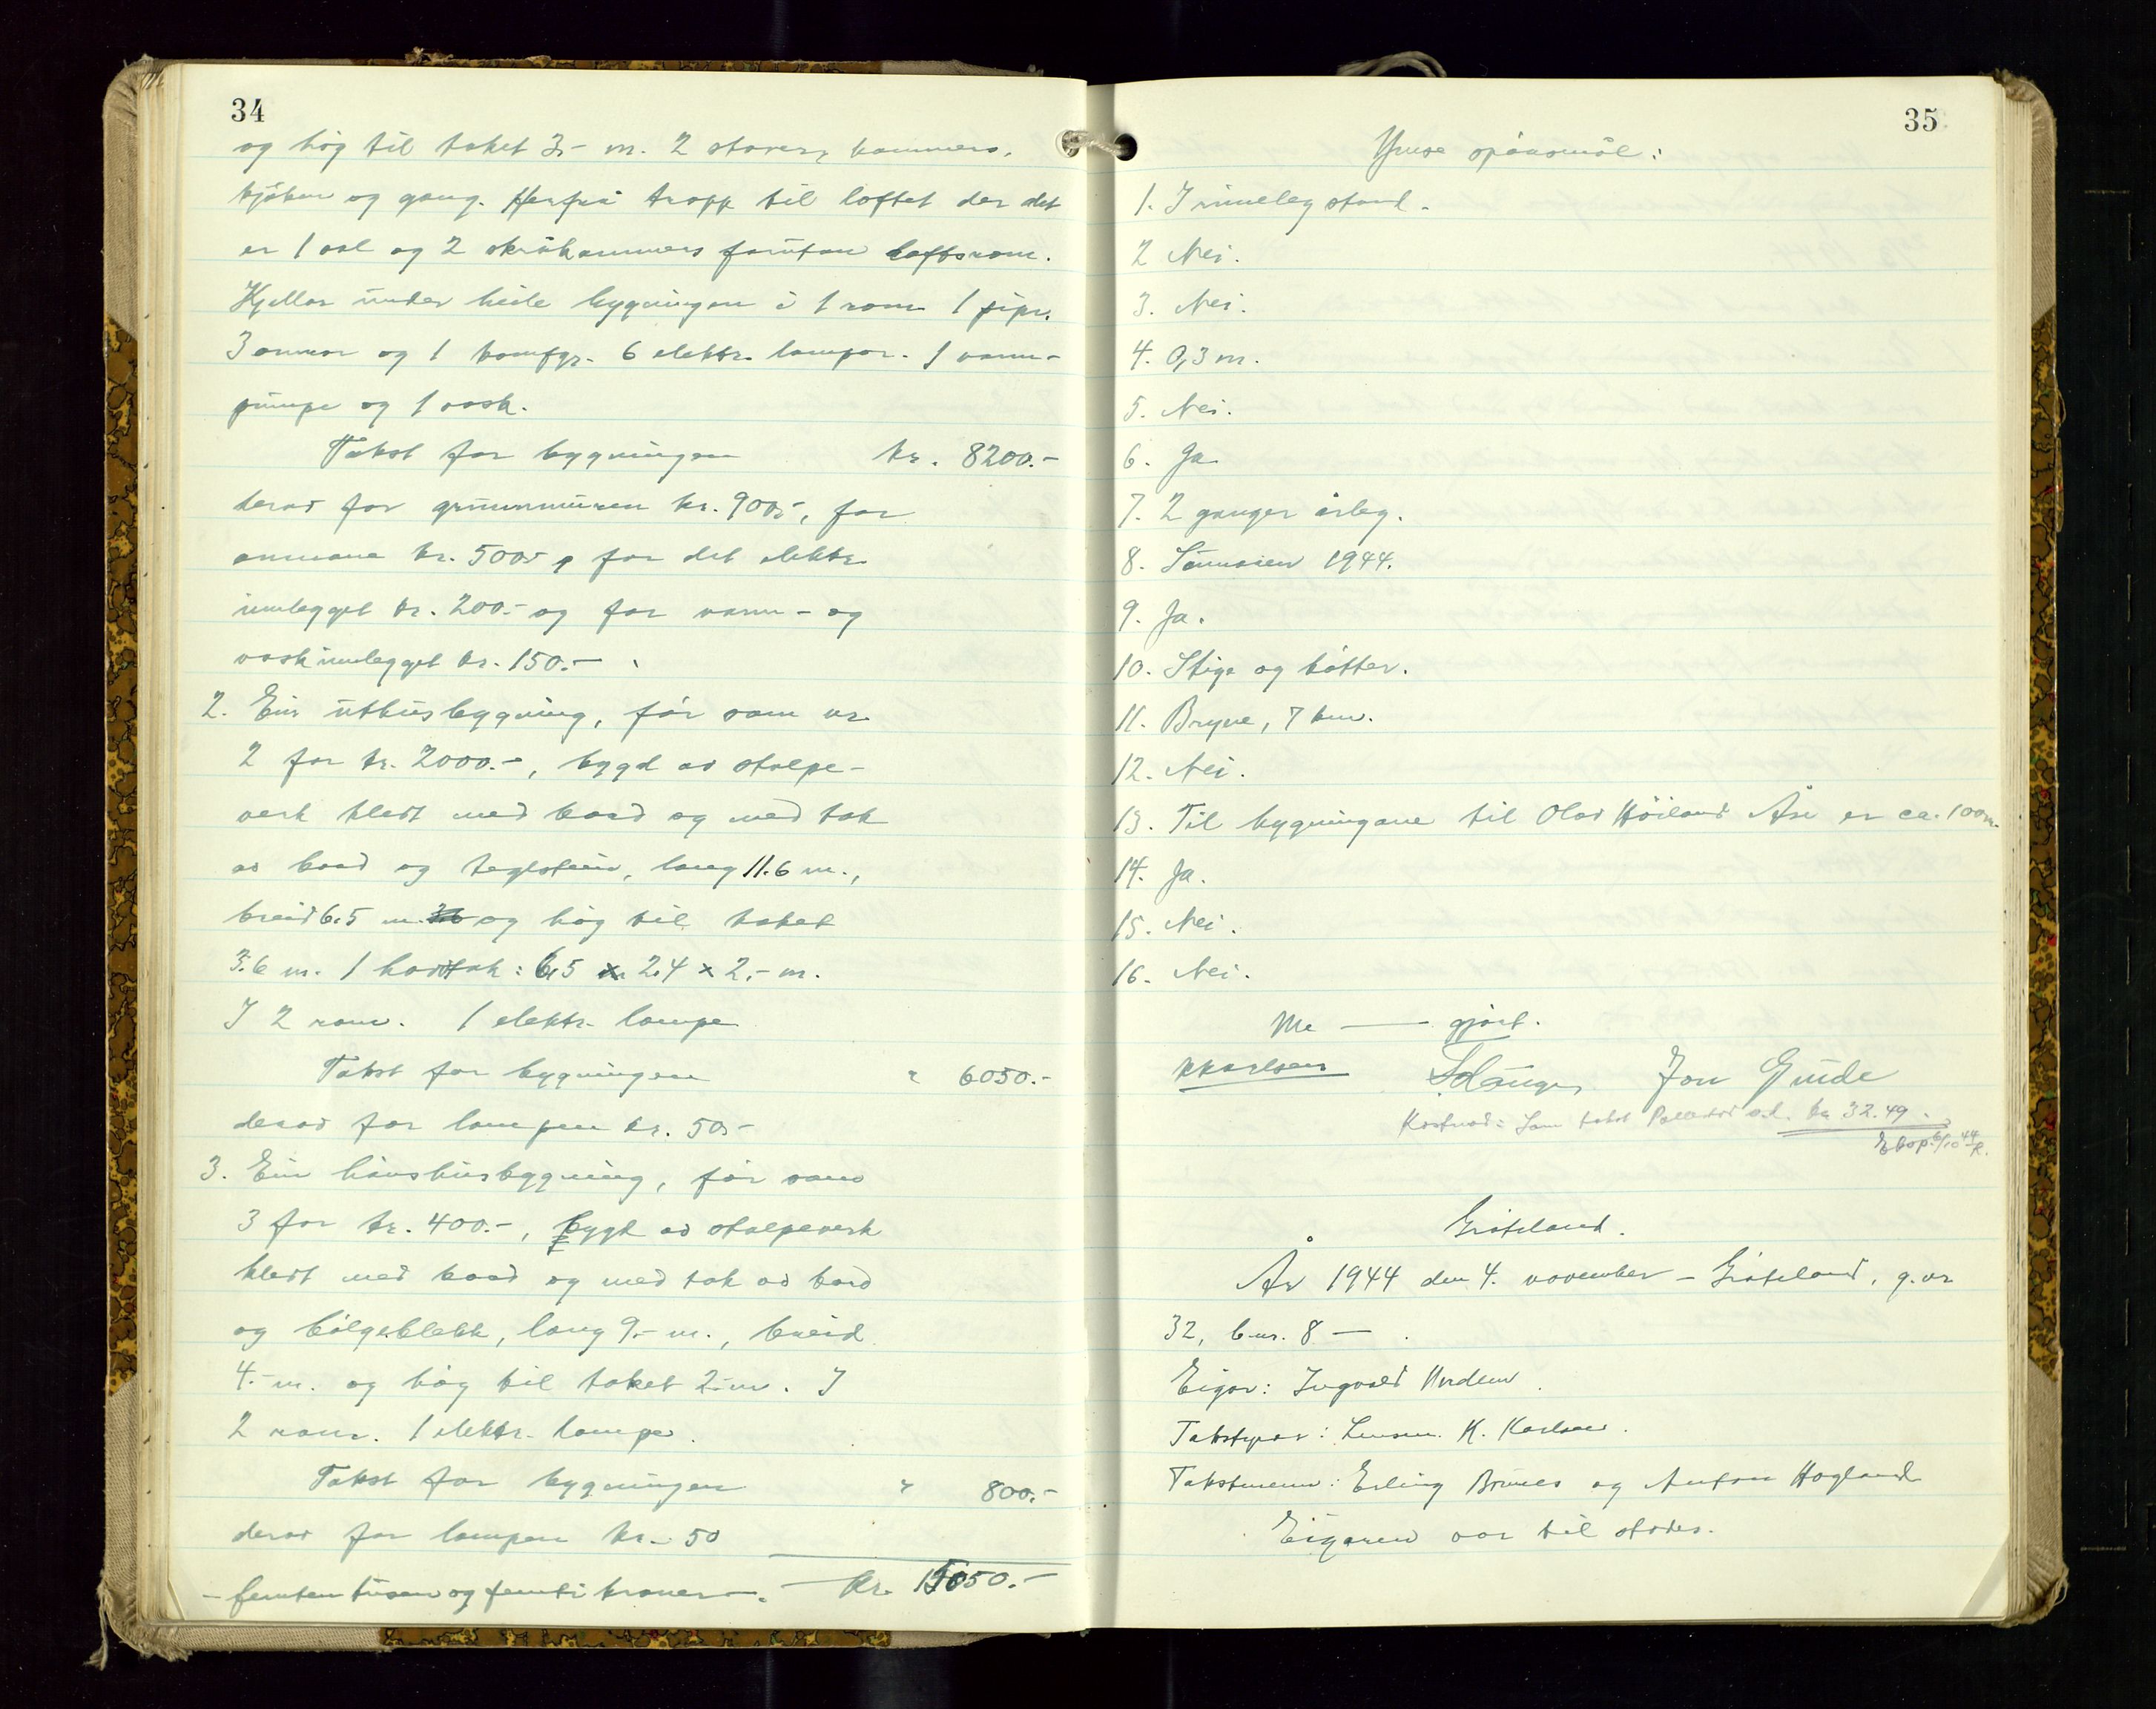 34
og høg til taket 3,- m. 2 stover, kammers,
kjøken og gang. Herfrå tropp til loftet der det
er 1 sal og 2 skråkammers forutan loftsrom.
Kjellar under heile bygningen i 1 rom 1 pipe.
3 omnar og 1 komfyr. 6 elektr. lampor. 1 vann-
pumpe og 1 vask.
Takst for bygningen kr. 8200.-
derav for grunnmuren kr. 900,-, for
omnane kr. 500,-, for det elektr.
innlegget kr. 200.- og for vann- og
vaskinnlegget kr. 150.-
2. Ein uthusbygning, før som nr.
2 for kr. 2000.-, bygd av stolpe-
verk kledt med bord og med tak
av bord og teglstein, lang 11.6 m.,
breid 6.5 m. og høg til taket
3.6 m. 1 halvtak: 6,5 x 2.4 x 2,- m.
I 2 rom. 1 elektr. lampe
Takst for bygningen " 6050.-
derav for lampen kr. 50,-
3. Ein hønshusbygning, før som
3 for kr. 400.-, bygt av stolpeverk
kledt med bord og med tak av bord
og bølgeblekk, lang 9,- m., breid
4.- m. og høg til taket 2.- m. I
2 rom. 1 elektr. lampe.
Takst for bygningen " 800.-
derav for lampen kr. 50
- femten tusen og femti kroner -. kr. 15050.-
35
Ymse spörsmål:
1. I rimeleg stand.
2 Nei.
3. Nei.
4. 0,3 m.
5. Nei.
6. Ja
7. 2 ganger årleg.
8. Sommeren 1944.
9. Ja.
10. Stige og bøtter.
11. Bryne, 7 km.
12. Nei.
13. Til bygningane til Olav Høiland Åse er ca. 100 m.
14. Ja.
15. Nei.
16. Nei.
Me — gjort.
KKarlsen Jon Gude
Kostnad: Som takst kr 32.49.
Grøteland.
År 1944 den 4. november - Grøteland, g.nr
32, b.nr. 8 — .
Eigar: Ingvald Undem.
Takstyrar: Lensm. K. Karlsen.
Takstmenn: Erling Brunes og Anfinn Hogland
Eigaren var til stades.